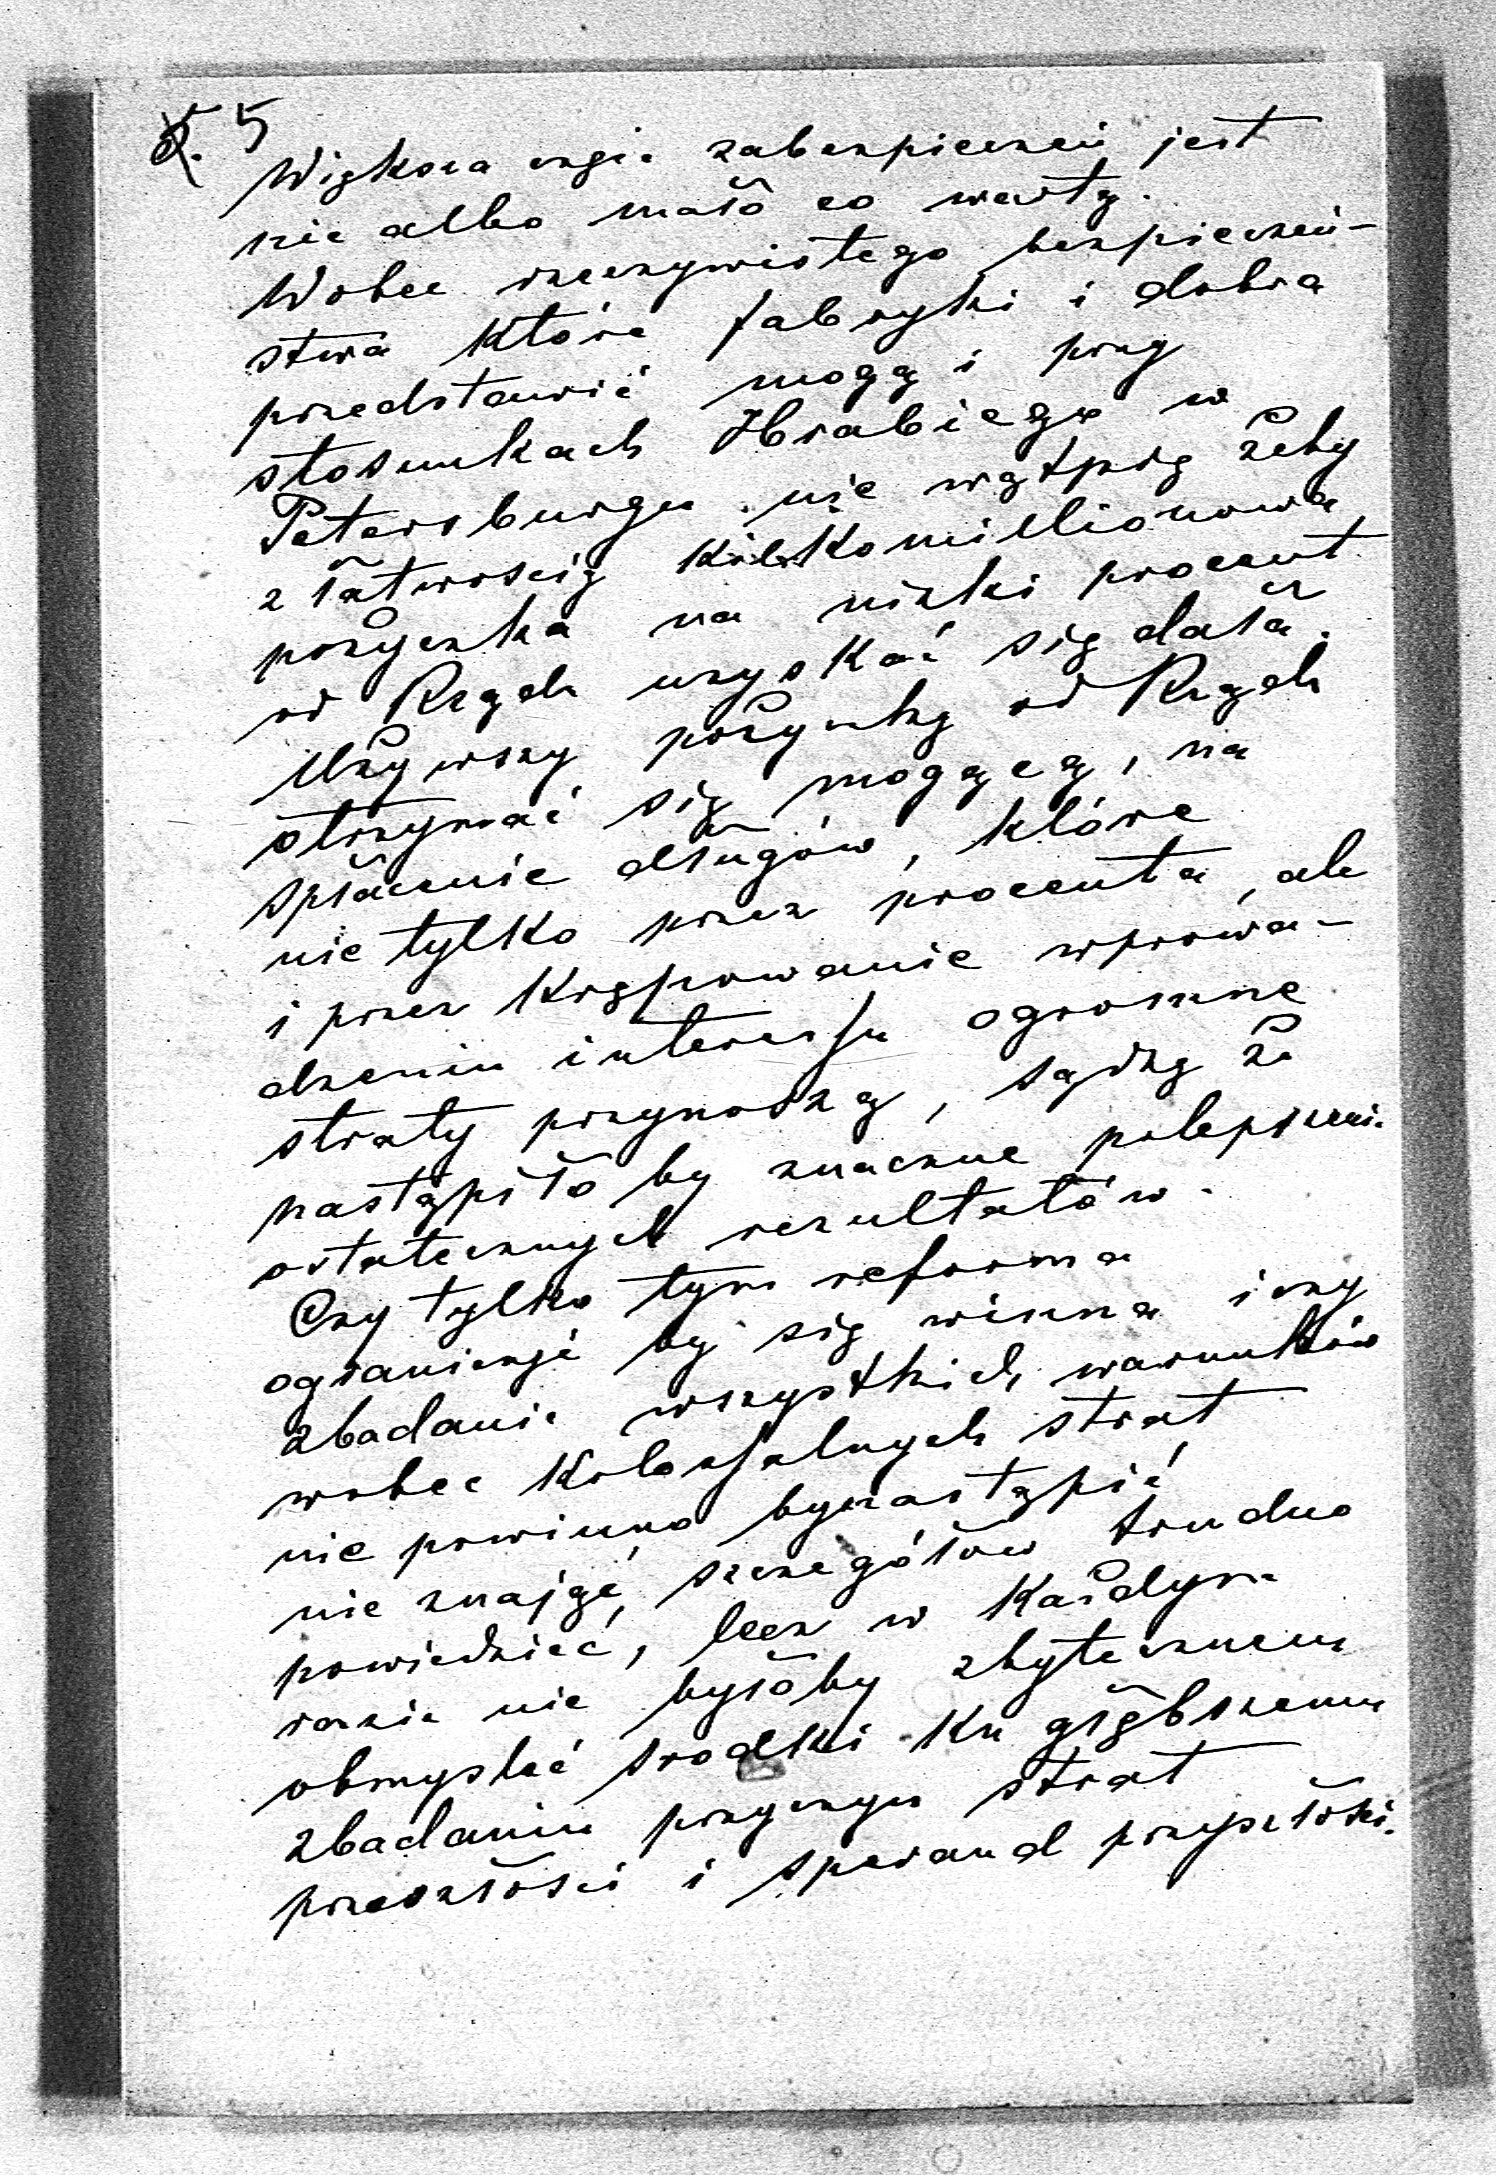 5
Większa część zabezpieczeń jest
nic albo mało co wartą.
Wobec rzeczywistego bezpieczeń-
stwa które fabryki i dobra
przedstawić mogą i przy
stosunkach Hrabiego w
Petersburgu nie wątpię żeby
z łatwością kilkomillionowa
pożyczka na nizki procent
od Rządu uzyskać się dała.
Używszy pożyczkę od Rządu
otrzymać się mogącą, na
spłacenie długów, które
nie tylko przez procenta, ale
i przez krępowanie wprowa-
dzeniu interessu ogromne
straty przynoszą, sądzę że
nastąpiło by znaczne polepszenie
ostatecznych rezultatów.
Czy tylko tym reforma
ograniczyć by się winna i czy
zbadanie wszystkich warunków
wobec kolossalnych strat
nie powinno by nastąpić
nie znając szczegółów trudno
powiedzieć, lecz w każdym
razie nie byłoby zbytecznem
obmyśleć środki ku głębszemu
zbadaniu przyczyn strat
przeszłości i sperand przyszłości.